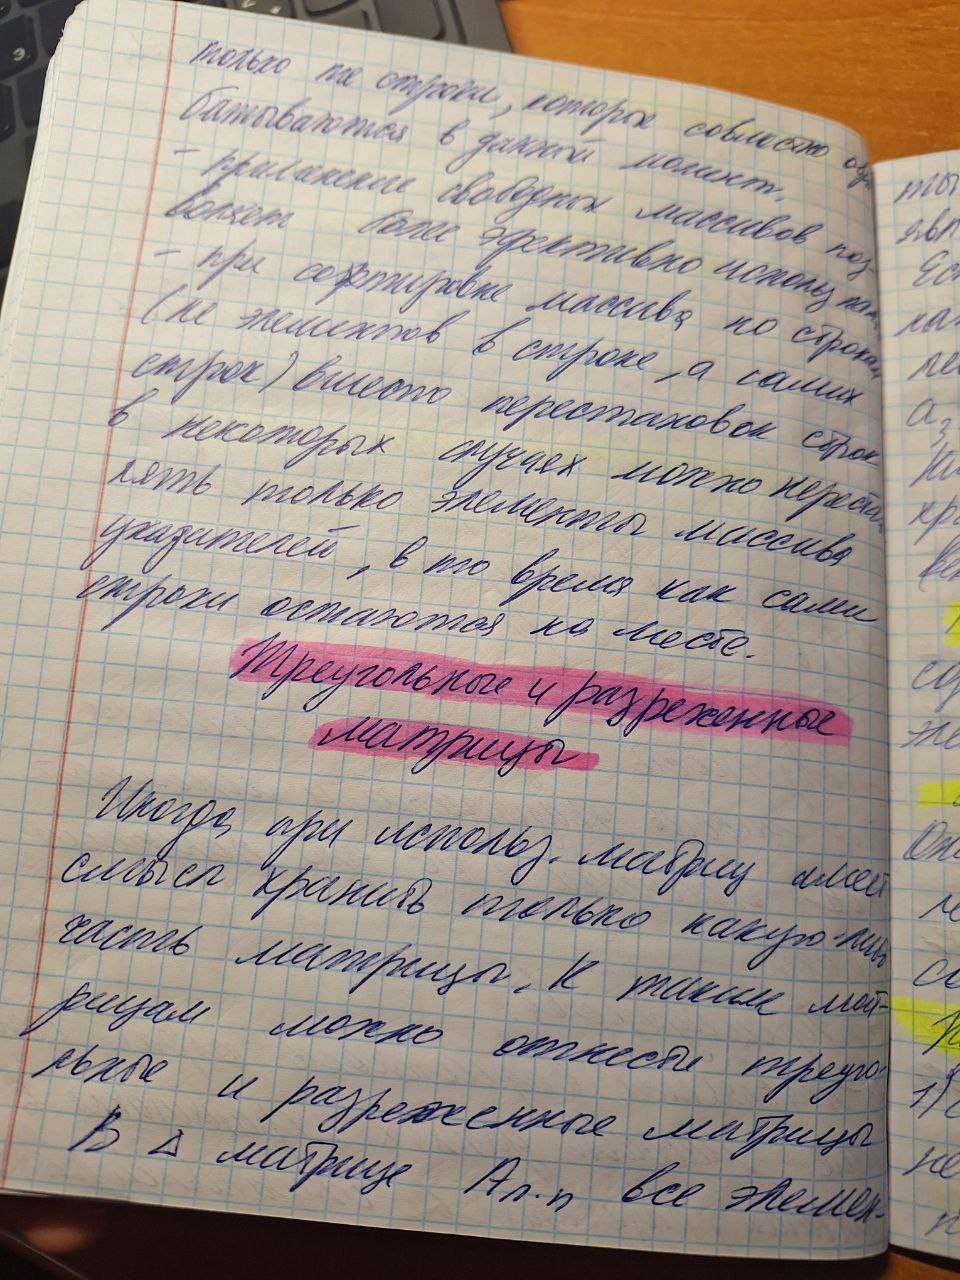 только те строки, которые совместно обра
батываются в данный момент.
- рименение свободных массивов поз-
воляет более эфективно использ пам.
- при сортировке массива по строкам
(не элементов в строке, а самих
строк) вместо перестановок строк
в некоторых случаех можно перестав
лять только элементы массива
указателей, в то время как сами
строки остаются на месте.
Треугольные и разреженные
матрицы
Иногда при использ. матриц имеет
смысл хранить только какую-либо
часть матрицы. К таким мат-
рицам можно отнести треуго-
льные и разреженные матрицы
В Δ матрице An.n все элемен-
ты
явл
Ес
a3
кр
сод
эле
1)
не